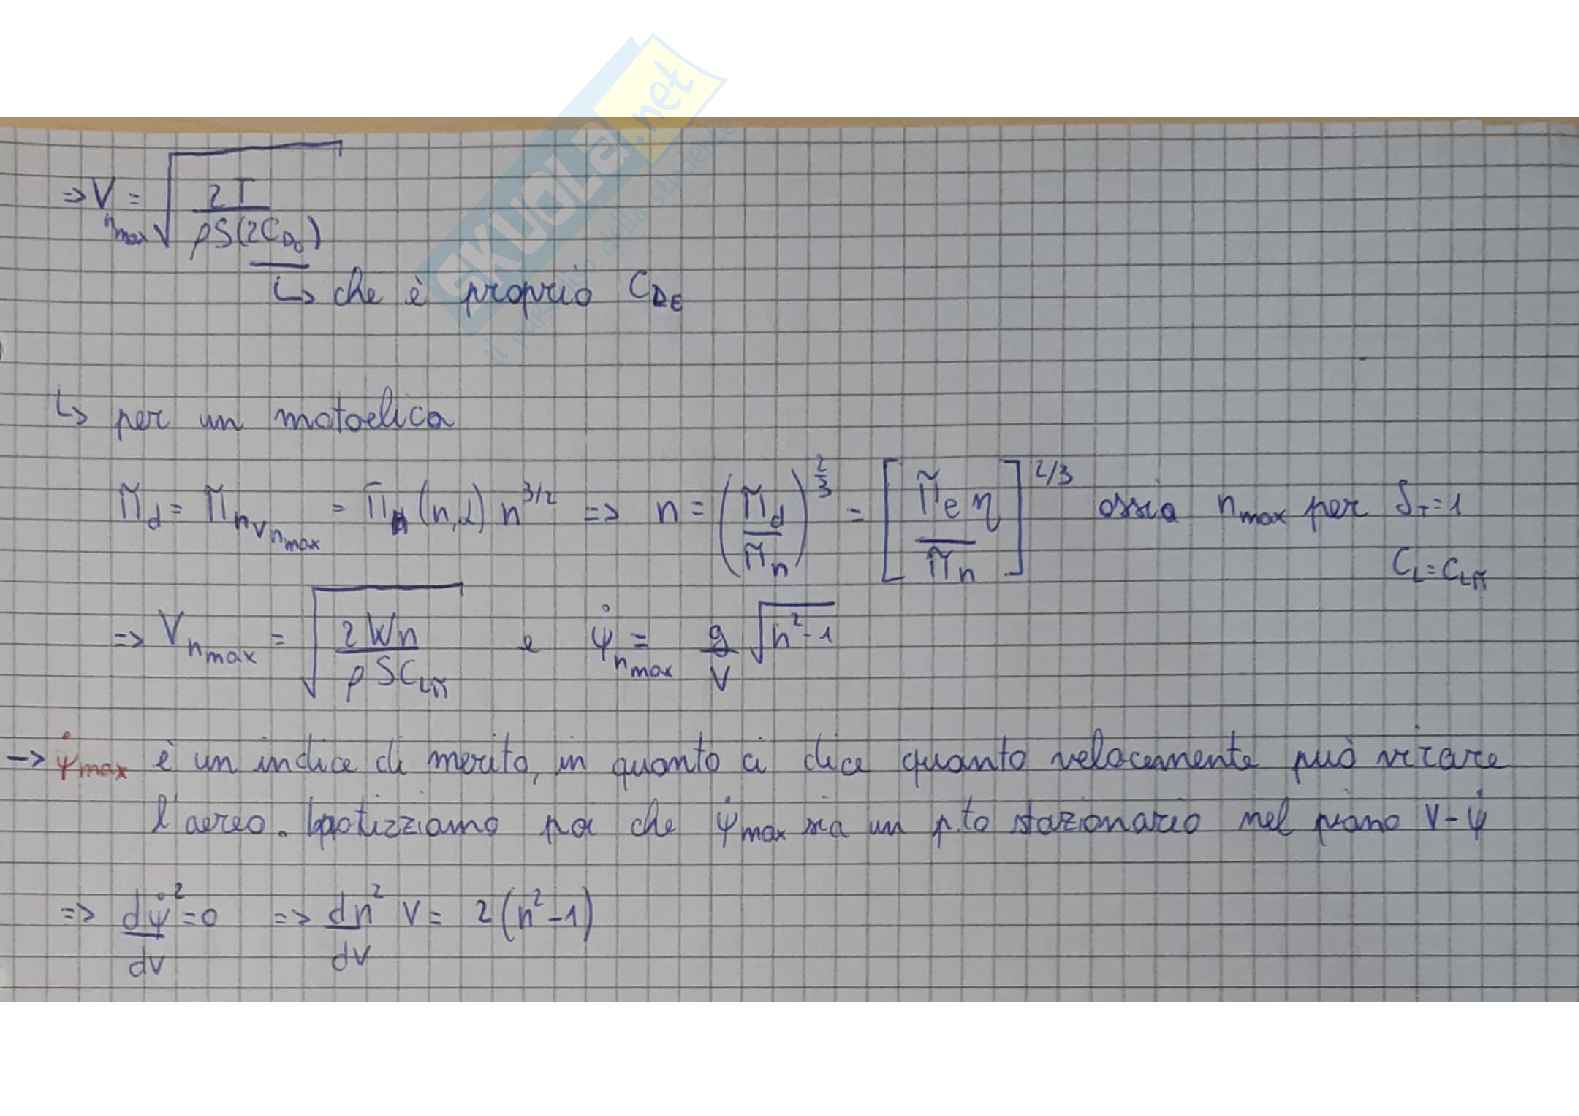 SKUOLA.net
=> V_{n_{max}} = √(2T / ρS(2C_{D_0}))
↳ che è proprio C_{D_E}
↳ per un motoelica
Π_d = Π_{n_{V_{n_{max}}}} = Π_n (n,α) n^{3/2} => n = (Π_d / Π_n)^{2/3} = [Π_e η / Π_n]^{2/3} ossia n_{max} per δ_T = 1
C_L = C_{L_Π}
=> V_{n_{max}} = √(2Wn / ρSC_{L_Π}) e ψ̇_{n_{max}} = g/V √(n²-1)
-> ψ̇_{max} è un indice di merito, in quanto ci dice quanto velocemente può virare
l'aereo. Ipotizziamo poi che ψ̇_{max} sia un p.to stazionario nel piano V-ψ̇
=> dψ̇²/dV = 0 => dn²/dV V = 2(n²-1)